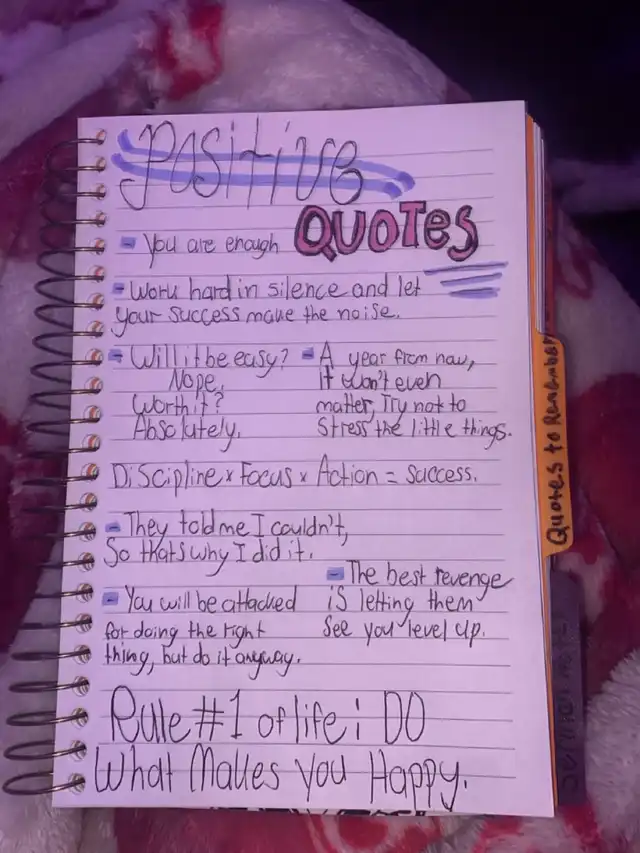 Positive
QUOTES
- You are enough
- Work hard in silence and let
your success make the noise.
- Will it be easy?
Nope,
Worth it?
Absolutely.
- A year from now,
it won't even
matter, Try not to
stress the little things.
Discipline x Focus x Action = Success.
- They told me I couldn't,
So thats why I did it.
- The best revenge
is letting them
see you level up.
- You will be attacked
for doing the right
thing, but do it anyway.
Rule #1 of life: DO
What Makes you Happy.
Quotes to Remember